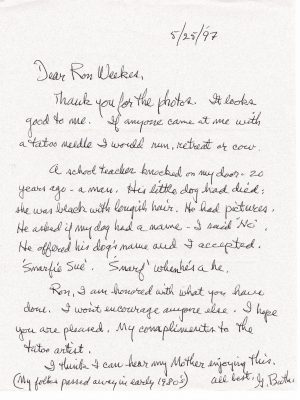 5/25/97
Dear Ron Weekes,
Thank you for the photos. It looks
good to me. If anyone came at me with
a tatoo needle I would run, retreat or cow.
A school teacher knocked on my door - 20
years ago - a man. His little dog had died;
he was black with longish hair. He had pictures.
He asked if my dog had a name - I said 'No'.
He offered his dog's name and I accepted.
'Smarfie Sue'. 'Smarf' when he's a he.
Ron, I am honored with what you have
done. I won't encourage anyone else. I hope
you are pleased. My compliments to the
tatoo artist.
I think I can hear my Mother enjoying this.
(My folks passed away in early 1980's) all best, G. Booth